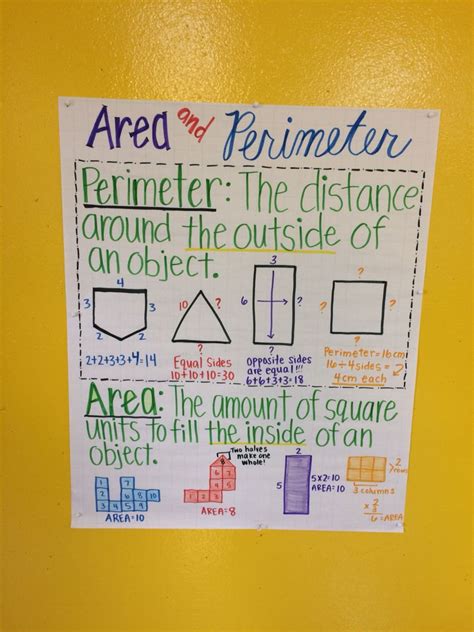 Area and Perimeter
Perimeter: The distance
around the outside of
an object.
4
3 3
2 2
2+2+3+3+4=14
10 ?
?
Equal Sides
10+10+10=30
3
6 ?
?
opposite sides
are equal!!!
6+6+3+3=18
?
? ?
?
Perimeter=16cm
16÷4sides=
4cm each
Area: The amount of square
units to fill the inside of an
object.
AREA=10
Two halves
make one
whole!
AREA=8
2
5
5x2=10
AREA=10
2
rows
3 columns
x 2
3
6 = AREA